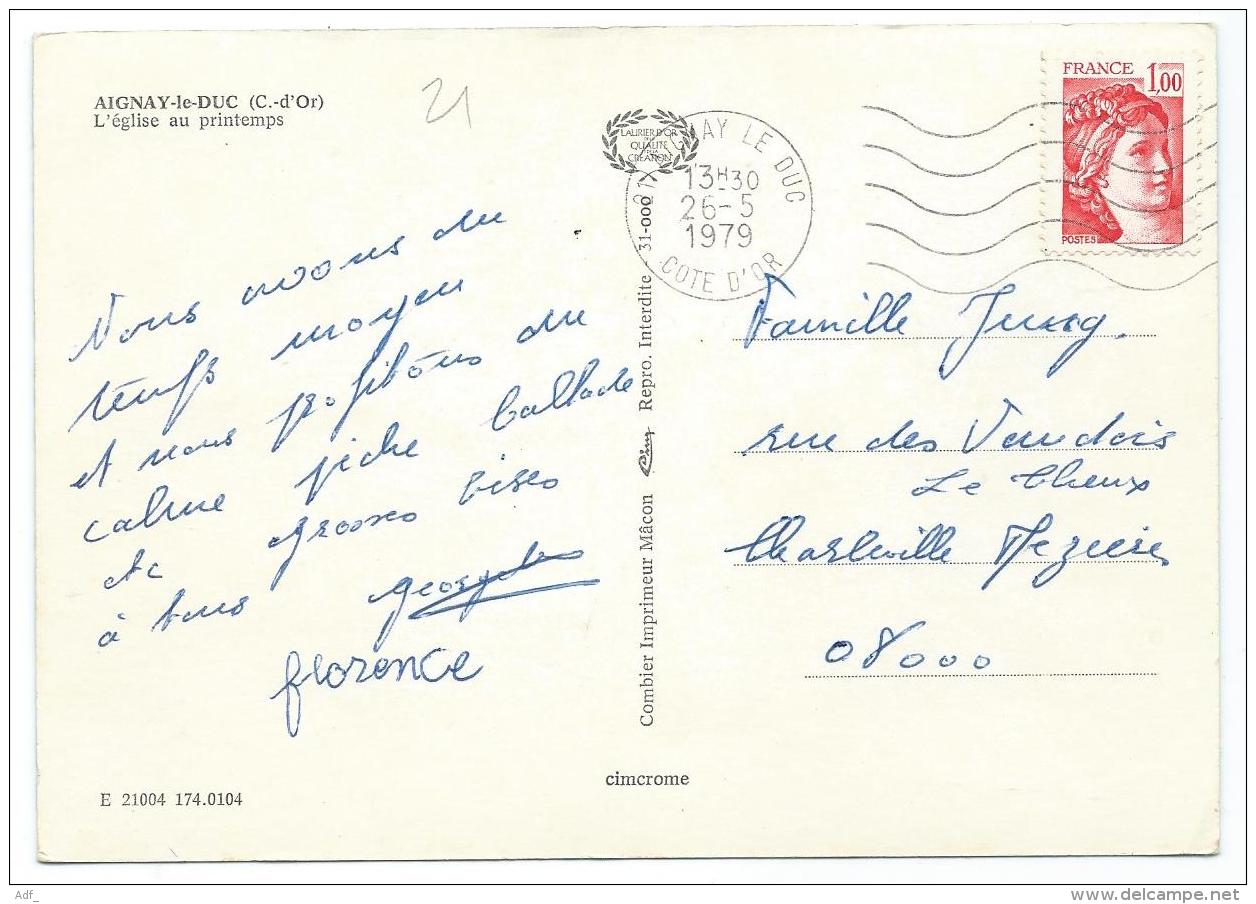 AIGNAY-le-DUC (C.-d'Or)
L'église au printemps
21
LAURIER D'OR
DE LA
QUALITÉ
DE LA
CREATION
21 AIGNAY LE DUC
13H30
26-5
1979
COTE D'OR
FRANCE 1,00
POSTES
Nous avons du
temps moyen
et nous profitons du
calme pêche ballade
etc grosses bises
à tous
florence
Combier Imprimeur Mâcon Cim Repro. Interdite - 31-000
Famille
rue des Vaudois
Le Theux
Charleville Mezieres
08000
cimcrome
E 21004 174.0104
Adf_
delcampe.net